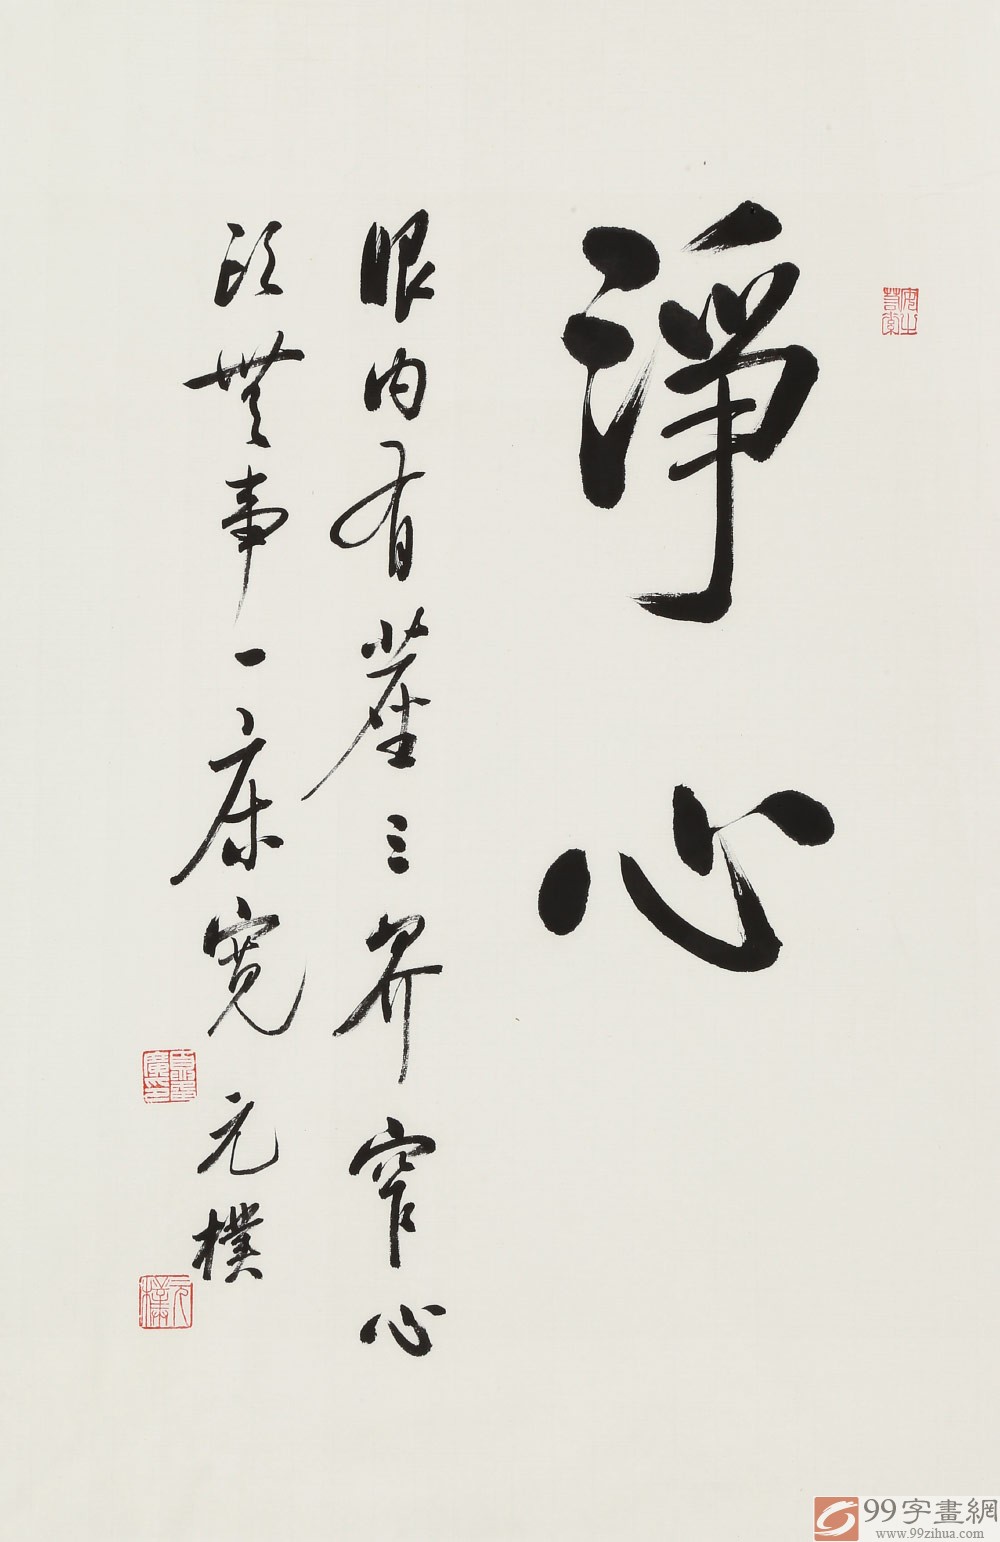 安之若素
淨心
眼内有塵三界窄心
頭無事一床寬 元樸
元樸
99字畫網
www.99zihua.com